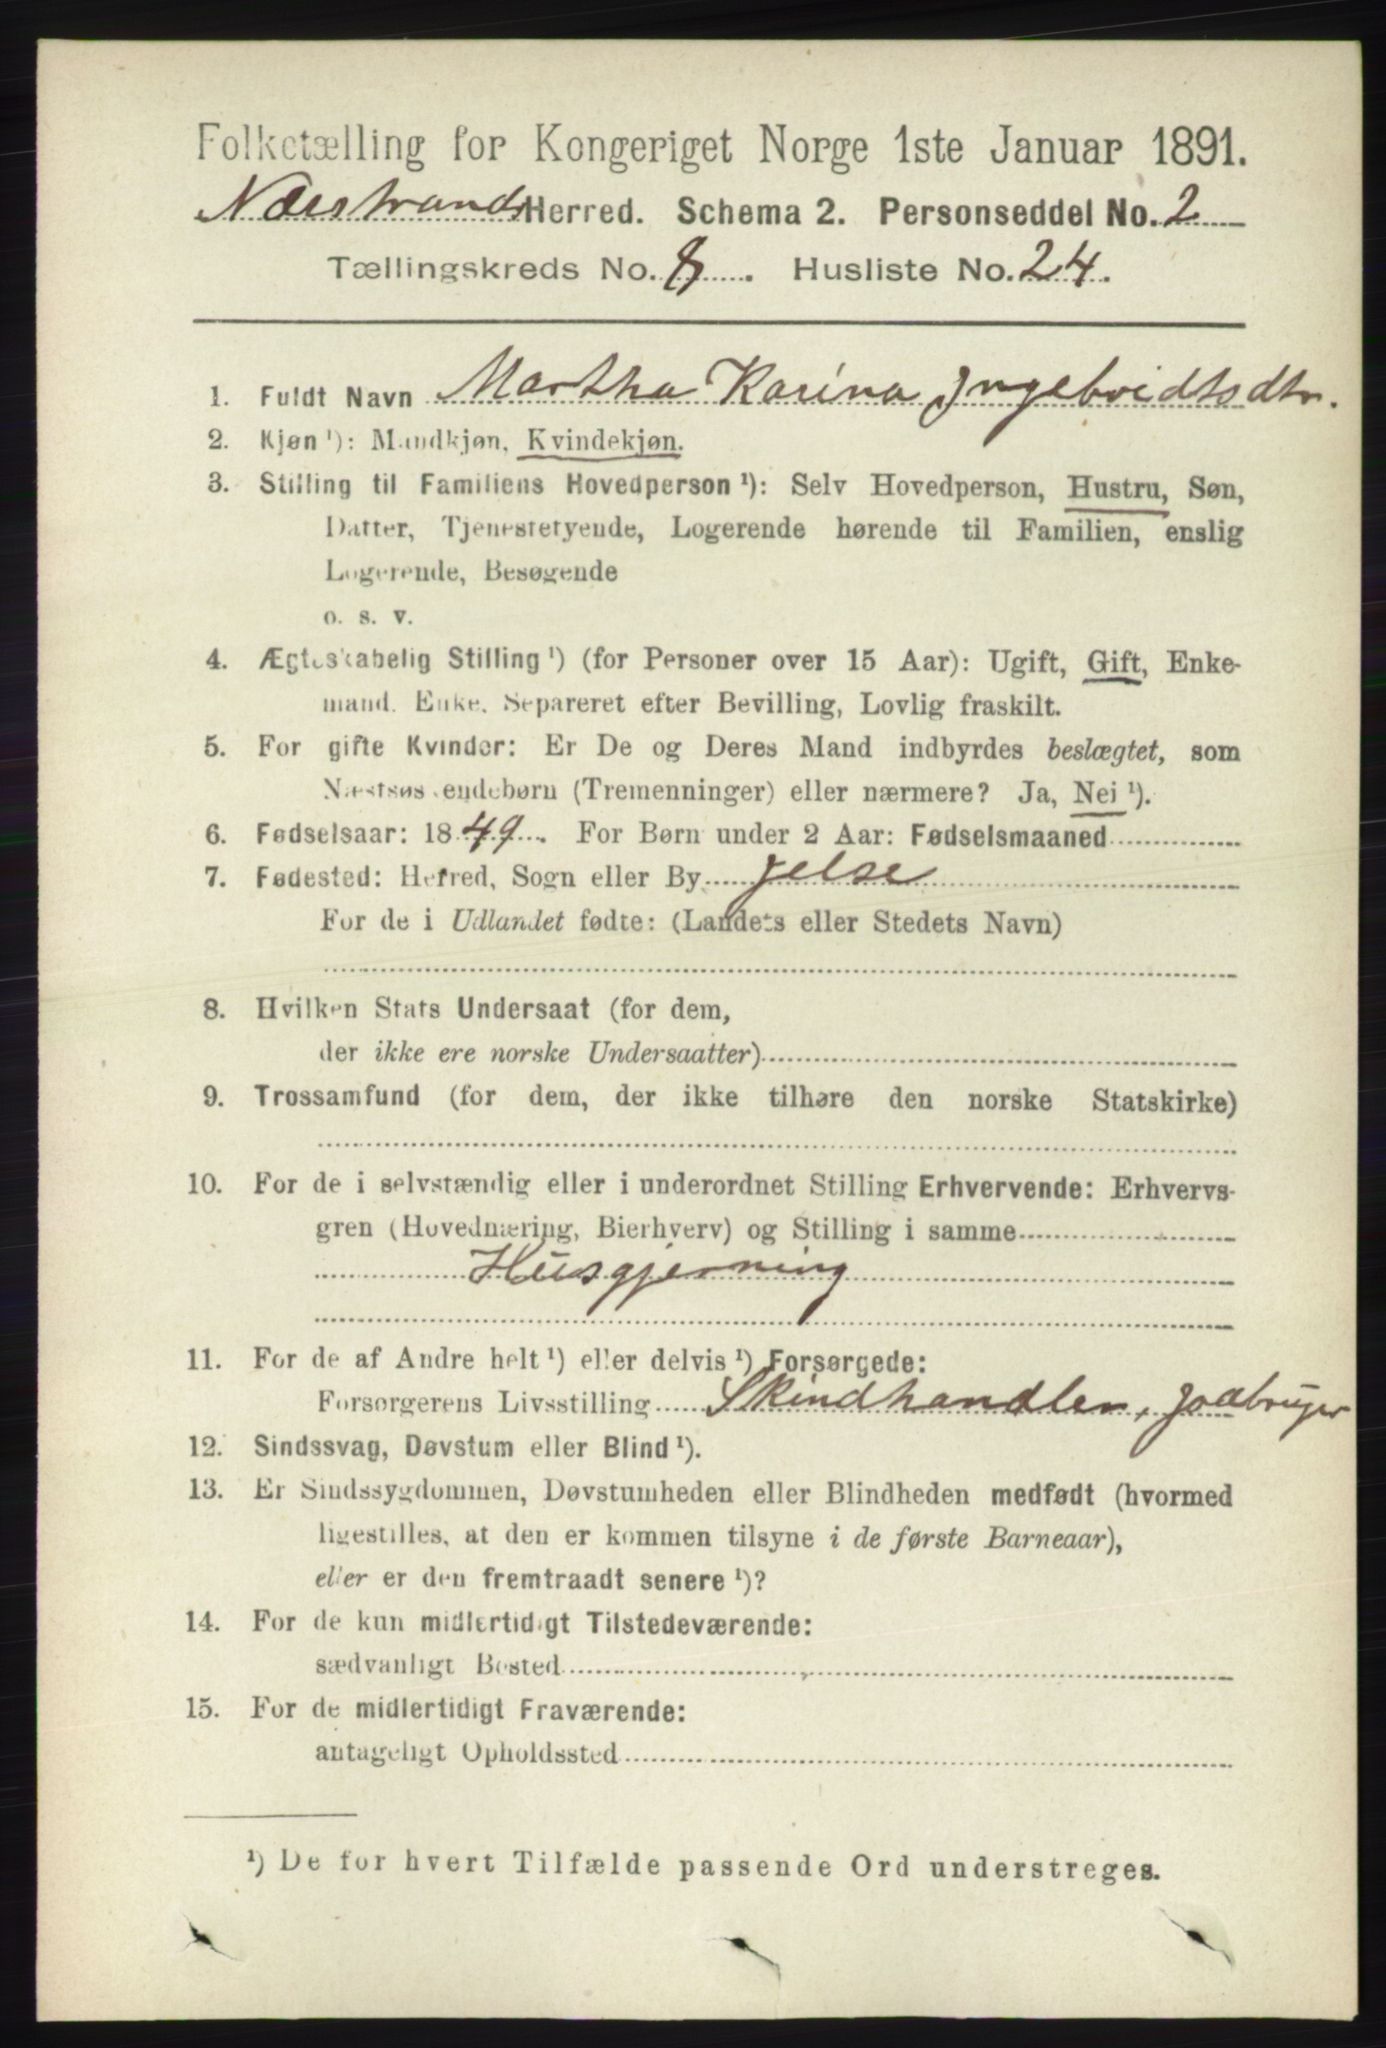 Folketælling for Kongeriget Norge 1ste Januar 1891.
Nærstrands Herred. Schema 2. Personseddel No. 2
Tællingskreds No. 8. Husliste No. 24.
1. Fuldt Navn Martha Karina Ingebridtsdtr.
2. Kjøn ¹): Mandkjøn, Kvindekjøn.
3. Stilling til Familiens Hovedperson ¹): Selv Hovedperson, Hustru, Søn,
Datter, Tjenestetyende, Logerende hørende til Familien, enslig
Logerende, Besøgende
o. s. v.
4. Ægteskabelig Stilling ¹) (for Personer over 15 Aar): Ugift, Gift, Enke-
mand, Enke, Separeret efter Bevilling, Lovlig fraskilt.
5. For gifte Kvinder: Er De og Deres Mand indbyrdes beslægtet, som
Næstsøskendebørn (Tremenninger) eller nærmere? Ja, Nei ¹).
6. Fødselsaar: 1849. For Børn under 2 Aar: Fødselsmaaned
7. Fødested: Herred, Sogn eller By Jelse
For de i Udlandet fødte: (Landets eller Stedets Navn)
8. Hvilken Stats Undersaat (for dem,
der ikke ere norske Undersaatter)
9. Trossamfund (for dem, der ikke tilhøre den norske Statskirke)
10. For de i selvstændig eller i underordnet Stilling Erhvervende: Erhvervs-
gren (Hovednæring, Bierhverv) og Stilling i samme
Husgjerning
11. For de af Andre helt ¹) eller delvis ¹) Forsørgede:
Forsørgerens Livsstilling Skindhandler, Jodbruger
12. Sindssvag, Døvstum eller Blind ¹).
13. Er Sindssygdommen, Døvstumheden eller Blindheden medfødt (hvormed
ligestilles, at den er kommen tilsyne i de første Barneaar),
eller er den fremtraadt senere ¹)?
14. For de kun midlertidigt Tilstedeværende:
sædvanligt Bosted
15. For de midlertidigt Fraværende:
antageligt Opholdssted
¹) De for hvert Tilfælde passende Ord understreges.